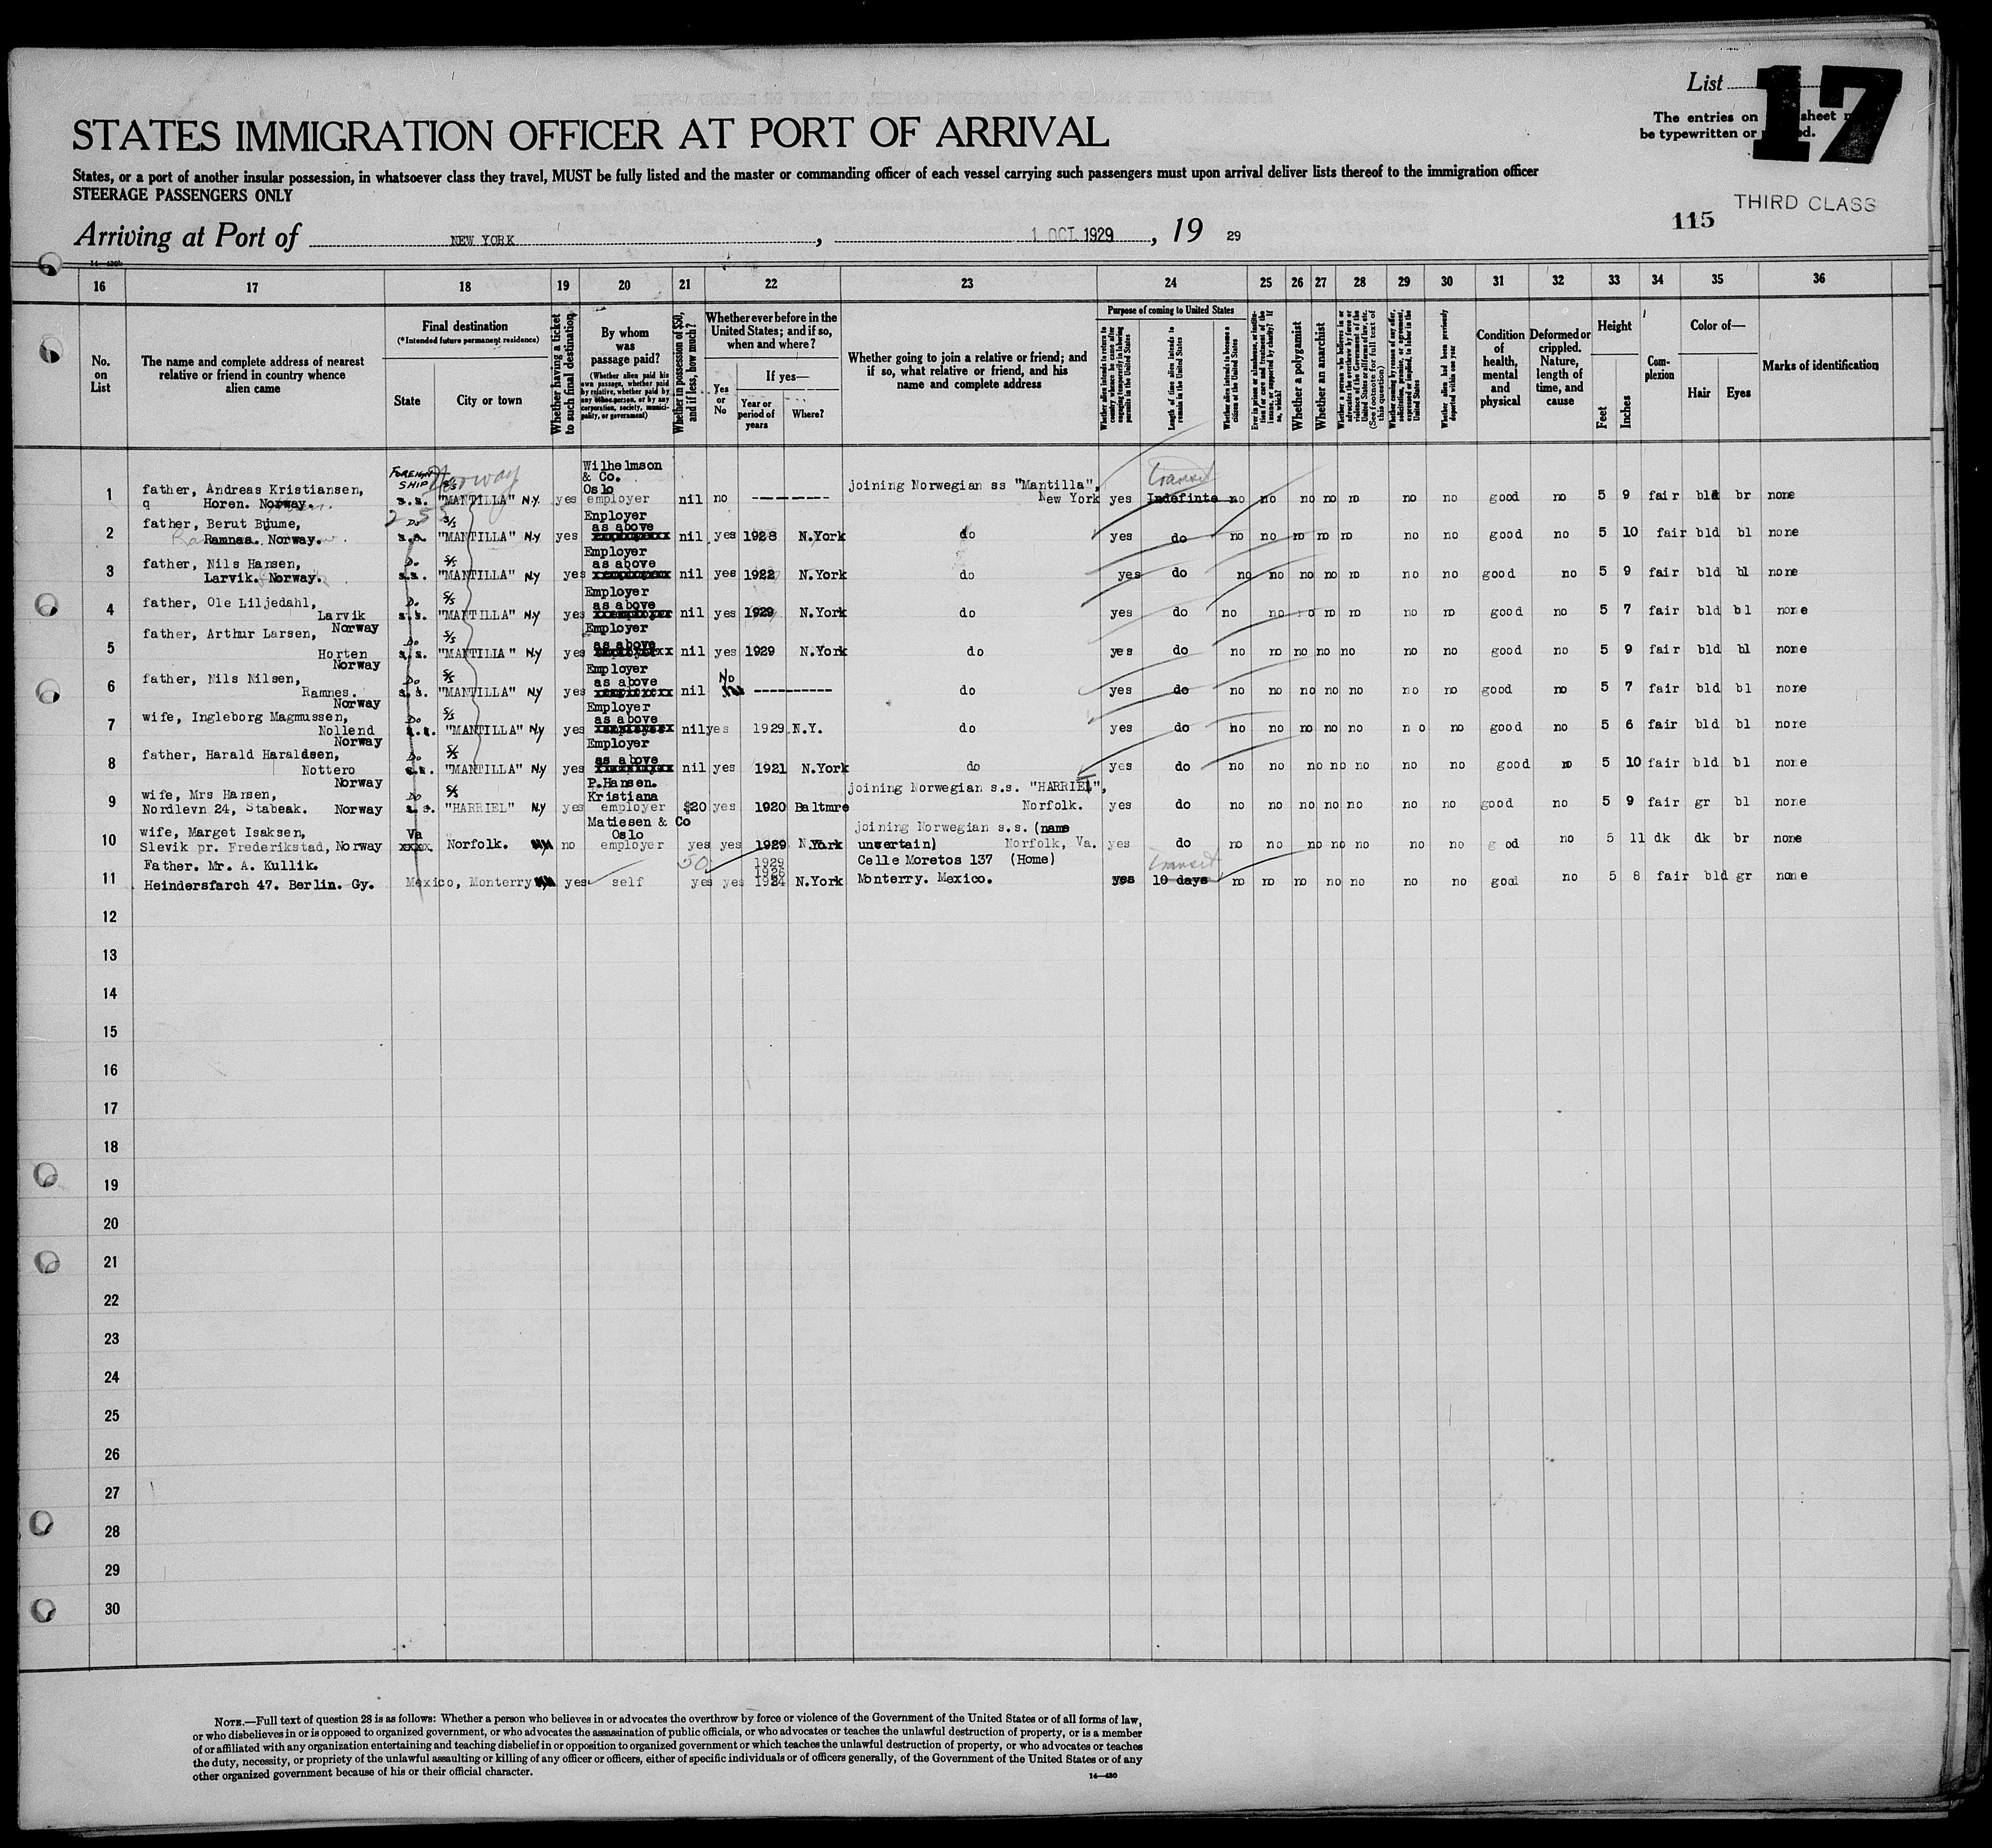 List 17
The entries on sheet
be typewritten or
STATES IMMIGRATION OFFICER AT PORT OF ARRIVAL
States, or a port of another insular possession, in whatsoever class they travel, MUST be fully listed and the master or commanding officer of each vessel carrying such passengers must upon arrival deliver lists thereof to the immigration officer
STEERAGE PASSENGERS ONLY
115 THIRD CLASS
Arriving at Port of NEW YORK, 1 OCT 1929, 19 29
16 17 18 19 20 21 22 23 24 25 26 27 28 29 30 31 32 33 34 35 36
No. on List
The name and complete address of nearest relative or friend in country whence alien came
Final destination
(*Intended future permanent residence)
State
City or town
Whether having a ticket to such final destination
By whom was passage paid?
(Whether alien paid his own passage, whether paid by relative, whether paid by any other person, or by any corporation, society, municipality, or government)
Whether in possession of $50, and if less, how much?
Whether ever before in the United States; and if so, when and where?
Yes or No
If yes—
Year or period of years
Where?
Whether going to join a relative or friend; and if so, what relative or friend, and his name and complete address
Purpose of coming to United States
Whether alien intends to return to country whence he came after engaging temporarily in laboring pursuits in the United States
Length of time alien intends to remain in the United States
Whether alien intends to become a citizen of the United States
Ever in prison or almshouse, or institution for care and treatment of the insane, or supported by charity? If so, which?
Whether a polygamist
Whether an anarchist
(See footnote for full text of this question)
Whether alien had been previously deported within one year
Condition of health, mental and physical
Deformed or crippled. Nature, length of time, and cause
Height
Feet
Inches
Complexion
Color of—
Hair
Eyes
Marks of identification
1 father, Andreas Kristiansen, Horen. Norway. FOREIGN SHIP Norway s.s. "MANTILLA" N.Y. yes Wilhelmson & Co. Oslo employer nil no ---------- joining Norwegian ss "Mantilla", New York yes Transit Indefinte no no no no no no no good no 5 9 fair bld br none
2 father, Berut Bjume, Ramnas. Norway. Do S/S "MANTILLA" N.Y yes Employer as above nil yes 1928 N.York do yes do no no no no no no no good no 5 10 fair bld bl none
3 father, Nils Hansen, Larvik. Norway. Do S/S "MANTILLA" N.Y yes Employer as above nil yes 1922 N.York do yes do no no no no no no no good no 5 9 fair bld bl none
4 father, Ole Liljedahl, Larvik Norway Do S/S "MANTILLA" N.Y yes Employer as above nil yes 1929 N.York do yes do no no no no no no no good no 5 7 fair bld bl none
5 father, Arthur Larsen, Horten Norway Do S/S "MANTILLA" N.Y yes Employer as above nil yes 1929 N.York do yes do no no no no no no no good no 5 9 fair bld bl none
6 father, Nils Nilsen, Ramnes. Norway Do S/S "MANTILLA" N.Y yes Employer as above nil No ---------- do yes do no no no no no no no good no 5 7 fair bld bl none
7 wife, Ingleborg Magmussen, Nollend Norway Do S/S "MANTILLA" N.Y yes Employer as above nil yes 1929 N.Y. do yes do no no no no no no no good no 5 6 fair bld bl none
8 father, Harald Haraldsen, Nottero Norway Do S/S "MANTILLA" N.Y yes Employer as above nil yes 1921 N.York do yes do no no no no no no no good no 5 10 fair bld bl none
9 wife, Mrs Hansen, Nordlevn 24, Stabeak. Norway Do S/S s.s. "HARRIEL" N.Y yes P.Hansen. Kristiana employer $20 yes 1920 Baltmre joining Norwegian s.s. "HARRIEL", Norfolk. yes do no no no no no no no good no 5 9 fair gr bl none
10 wife, Marget Isaksen, Slevik pr. Frederikstad, Norway Va Norfolk. no Matiesen & Co Oslo employer yes yes 1929 N.York joining Norwegian s.s. (name unvertain) Norfolk, Va. yes do no no no no no no no g od no 5 11 dk dk br none
11 Father. Mr. A. Kullik. Heindersfarch 47. Berlin. Gy. Mexico, Monterry yes self 50 yes yes 1929 1926 1924 N.York Celle Moretos 137 (Home) Monterry. Mexico. yes Transit 10 days no no no no no no no good no 5 8 fair bld gr none
12
13
14
15
16
17
18
19
20
21
22
23
24
25
26
27
28
29
30
NOTE.—Full text of question 28 is as follows: Whether a person who believes in or advocates the overthrow by force or violence of the Government of the United States or of all forms of law,
or who disbelieves in or is opposed to organized government, or who advocates the assassination of public officials, or who advocates or teaches the unlawful destruction of property, or is a member
of or affiliated with any organization entertaining and teaching disbelief in or opposition to organized government or which teaches the unlawful destruction of property, or who advocates or teaches
the duty, necessity, or propriety of the unlawful assaulting or killing of any officer or officers, either of specific individuals or of officers generally, of the Government of the United States or of any
other organized government because of his or their official character.
14—430